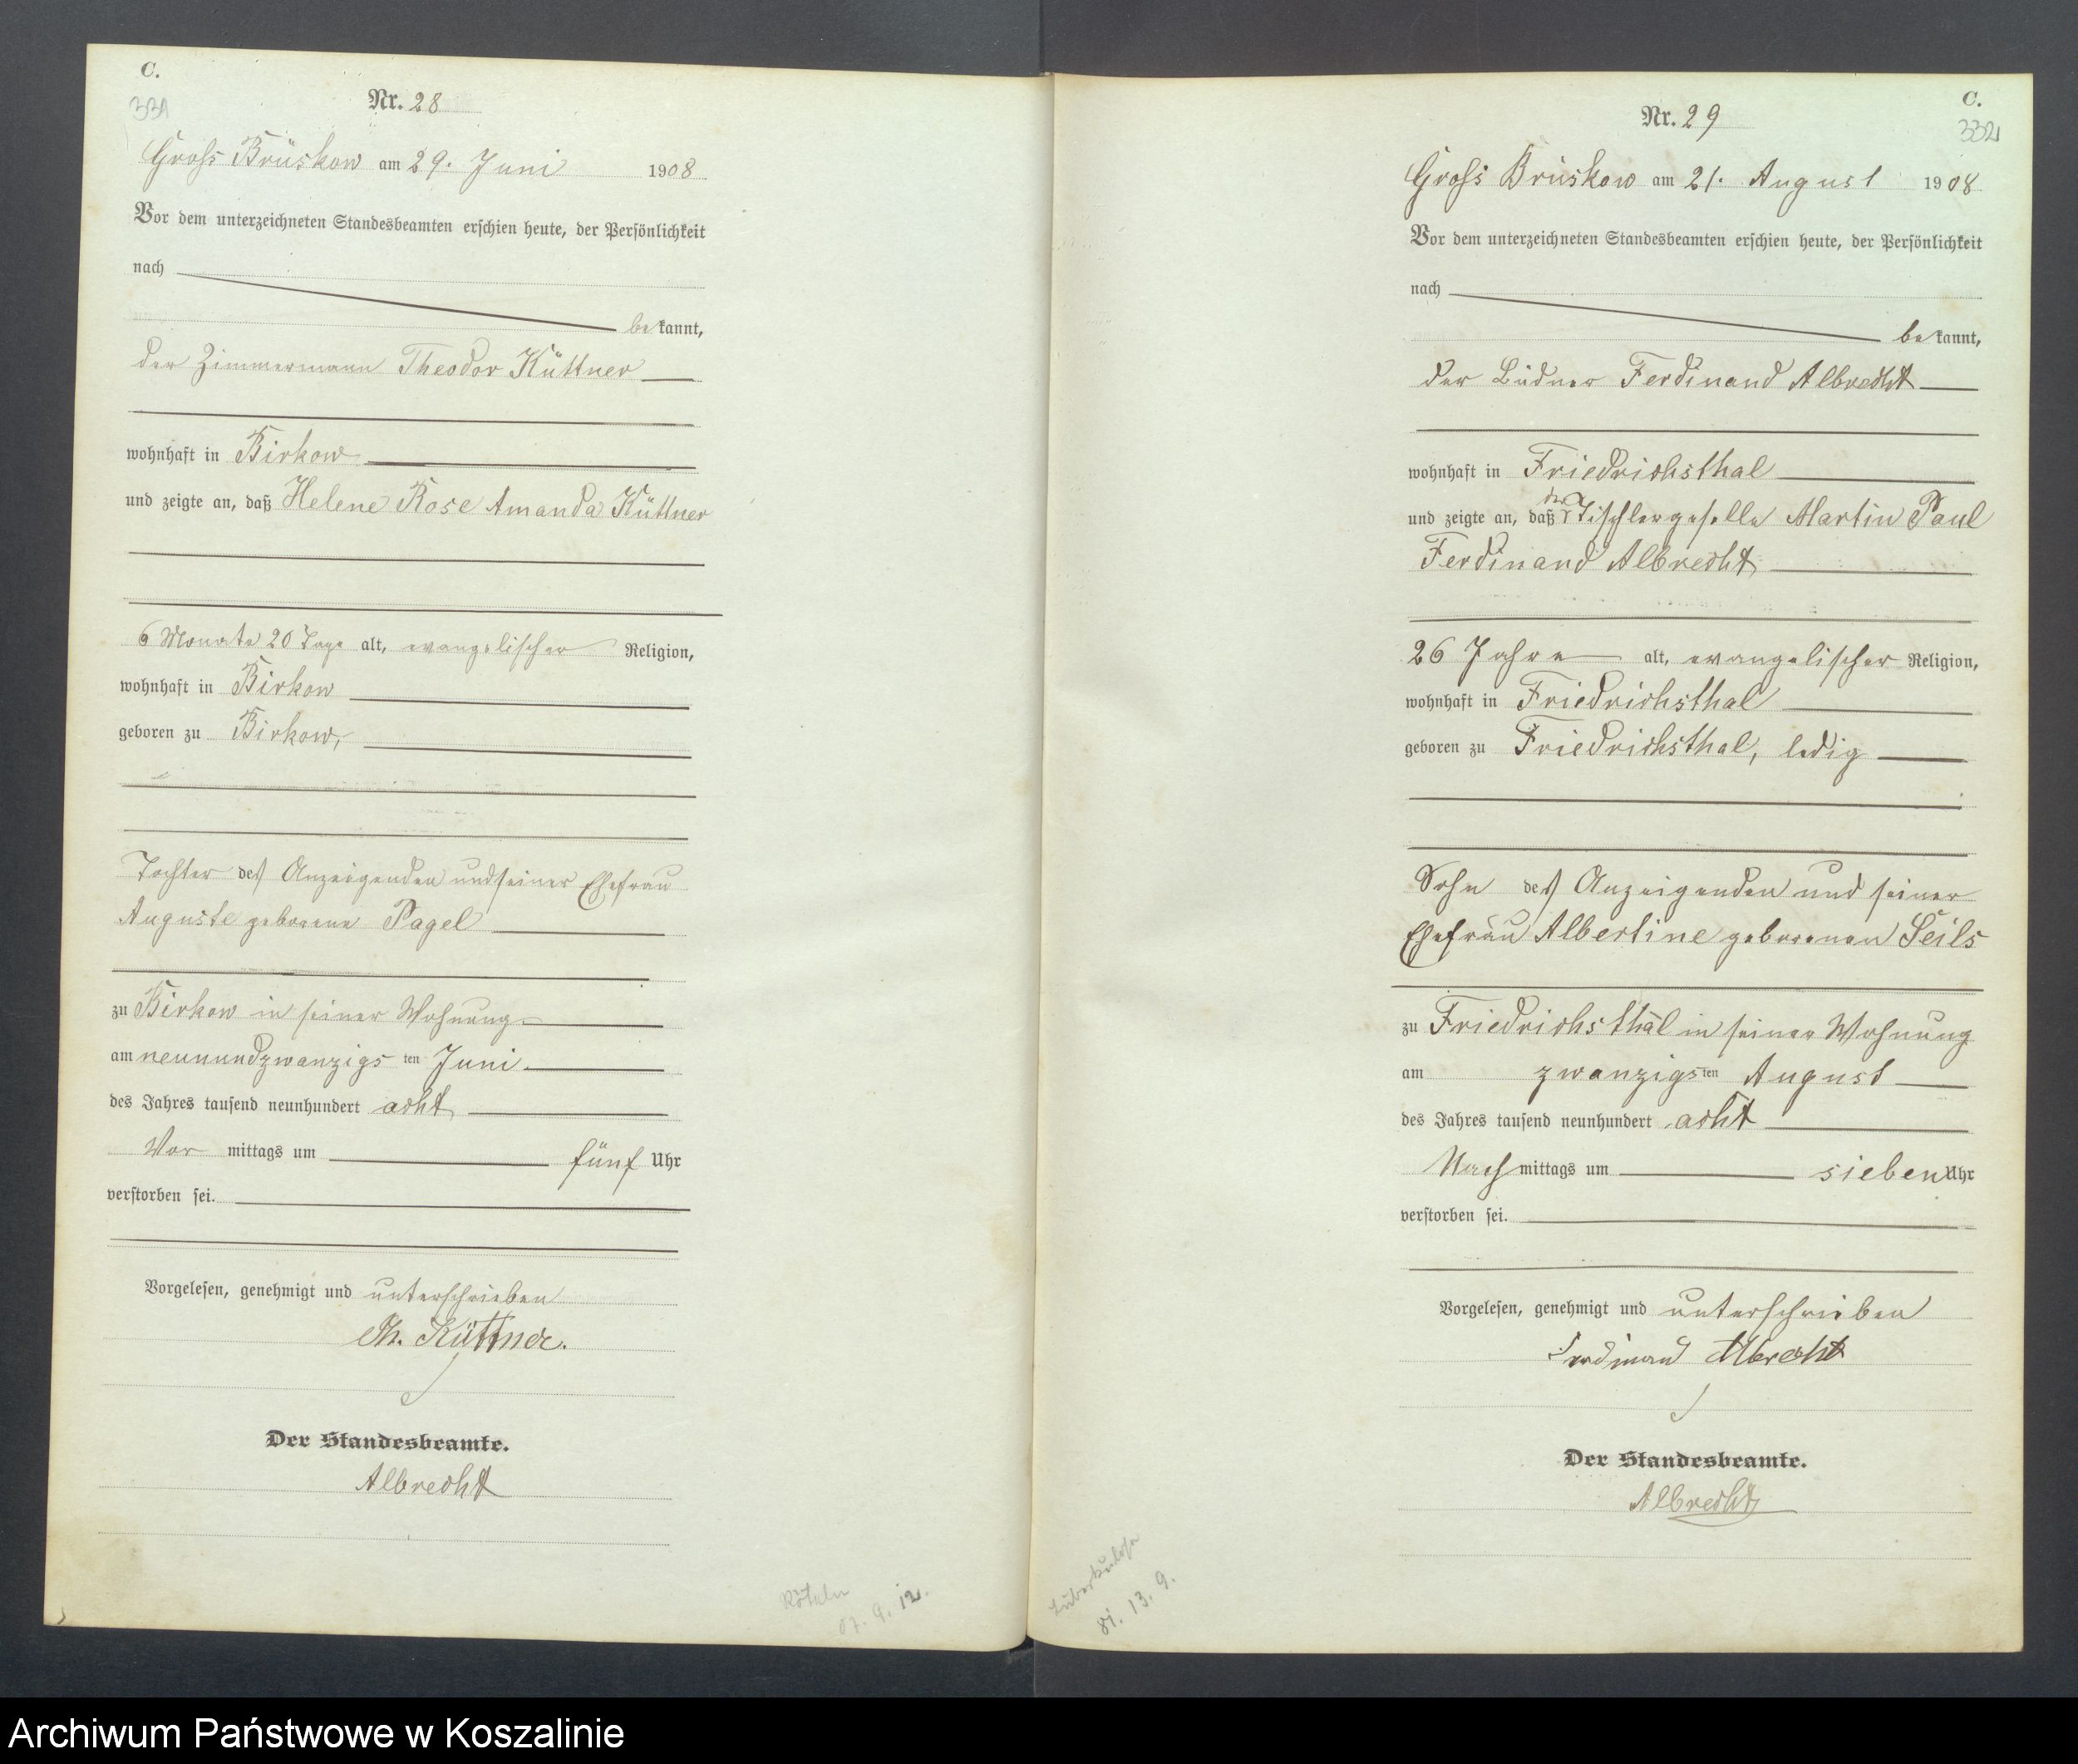 C.
331
Nr. 28
Gross Brüskow am 29. Juni 1908
Vor dem unterzeichneten Standesbeamten erschien heute, der Persönlichkeit
nach
be kannt,
der Zimmermann Theodor Küttner
wohnhaft in Birkow
und zeigte an, daß Helene Rose Amanda Küttner
6 Monate 20 Tage alt, evangelischer Religion,
wohnhaft in Birkow
geboren zu Birkow,
Tochter des Anzeigenden und seiner Ehefrau
Auguste geborene Pagel
zu Birkow in seiner Wohnung
am neunundzwanzigs ten Juni
des Jahres tausend neunhundert acht
Vor mittags um fünf Uhr
verstorben sei.
Vorgelesen, genehmigt und unterschrieben
Th. Küttner.
Der Standesbeamte.
Albrecht
Röteln
07. 9. 12.
C.
332
Nr. 29
Gross Brüskow am 21. August 1908
Vor dem unterzeichneten Standesbeamten erschien heute, der Persönlichkeit
nach
be kannt,
der Büdner Ferdinand Albrecht
wohnhaft in Friedrichsthal
und zeigte an, daß der Tischlergeselle Martin Paul
Ferdinand Albrecht
26 Jahre alt, evangelischer Religion,
wohnhaft in Friedrichsthal
geboren zu Friedrichsthal, ledig
Sohn des Anzeigenden und seiner
Ehefrau Albertine geborenen Seils
zu Friedrichsthal in seiner Wohnung
am zwanzigs ten August
des Jahres tausend neunhundert acht
Nach mittags um sieben Uhr
verstorben sei.
Vorgelesen, genehmigt und unterschrieben
Ferdinand Albrecht
Der Standesbeamte.
Albrecht
Tuberkulose
81. 13. 9.
Archiwum Państwowe w Koszalinie